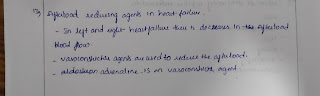 13) Afterload reducing agents in heart failure.
- In left and right heart failure there is decrease in the afterload
blood flow
- vasoconstrictor agents are used to reduce the afterload.
- adrenaline is an vasoconstrictor agent